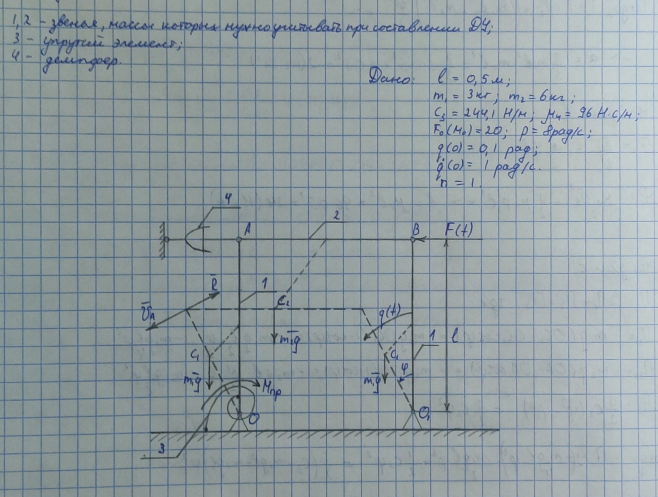 1,2 - звенья, массы которых нужно учитывать при составлении ДУ;
3 - упругий элемент;
4 - демпфер.
Дано: l = 0,5 м;
m₁ = 3 кг; m₂ = 6 кг;
C₃ = 244,1 Н/м; μ₄ = 96 Н·с/м;
F₀(M₀) = 20; p = 8 рад/с;
q(0) = 0,1 рад;
q̇(0) = 1 рад/с.
n = 1.
4
2
A
B
F(t)
R̄
1
C₂
V̄A
q(t)
m₂ḡ
1
l
C₁
C₁
m₁ḡ
Mпр
m₁ḡ
φ
O
O₁
3